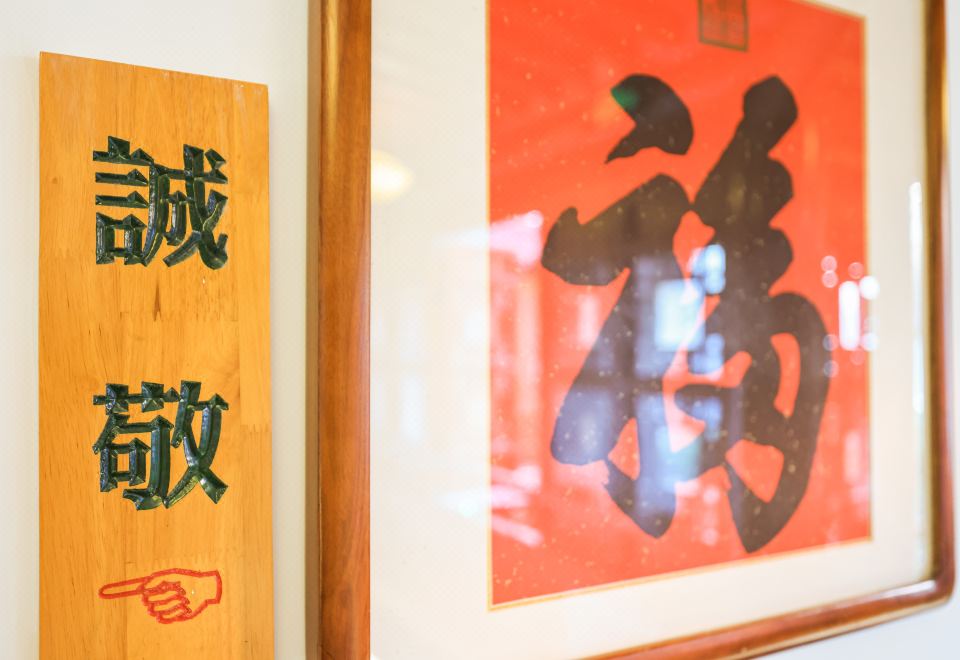 誠敬
福